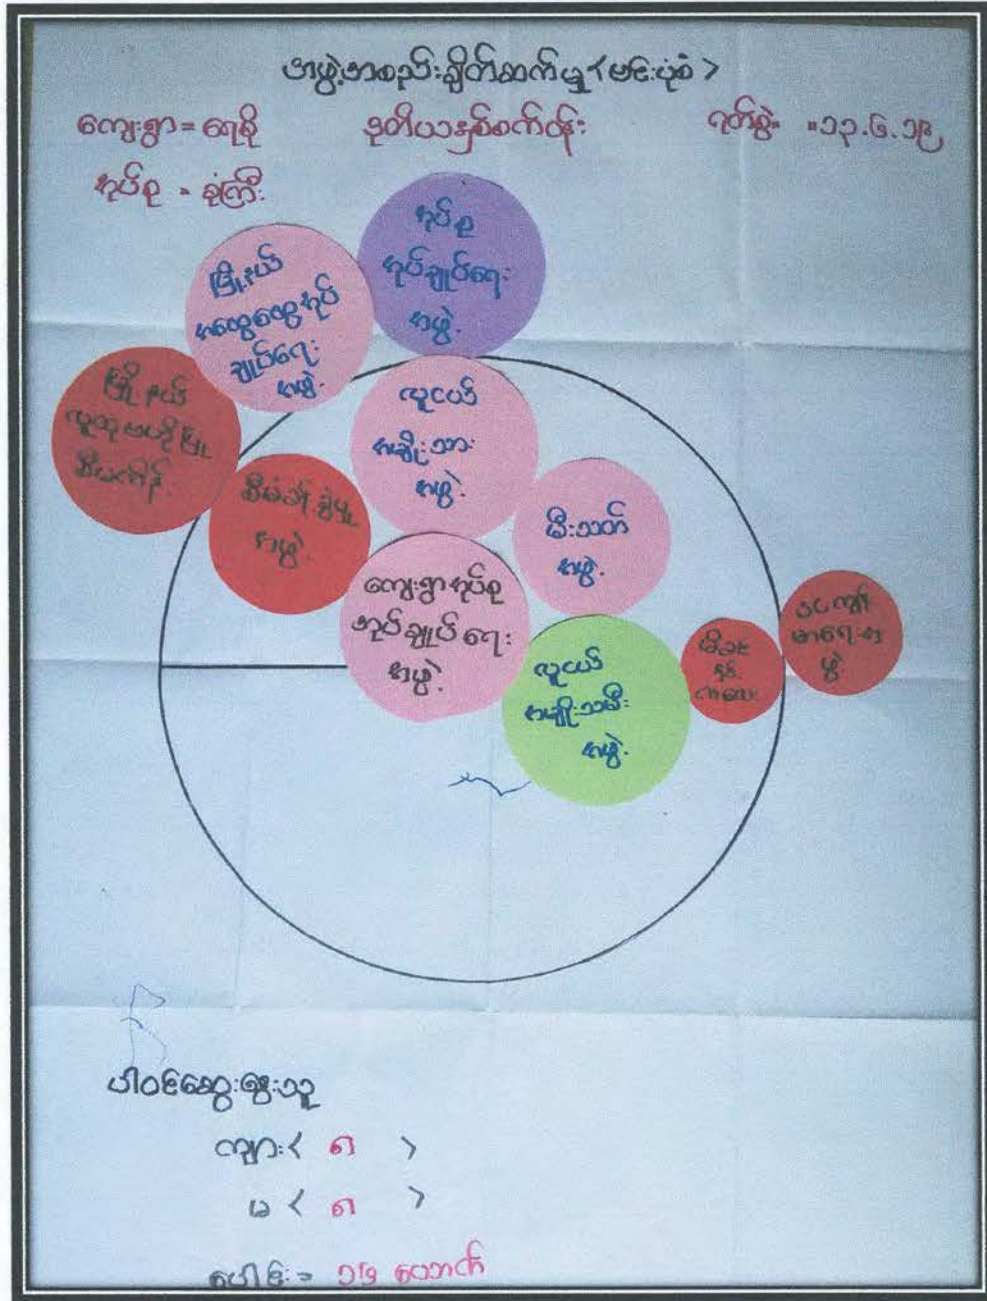 အဖွဲ့အစည်းချိတ်ဆက်မှု <ဗင်းပုံစံ>
ကျေးရွာ = ရေစို ဒုတိယနှစ်စက်ဝန်း ရက်စွဲ = ၁၃.၆.၁၉
အုပ်စု = ခုံကြီး
အုပ်စု
အုပ်ချုပ်ရေး
အဖွဲ့
မြို့နယ်
အထွေထွေအုပ်
ချုပ်ရေး
အဖွဲ့
မြို့နယ်
လူထုဗဟိုပြု
စီမံကိန်း
လူငယ်
အမျိုးသား
အဖွဲ့
စီမံခန့်ခွဲမှု
အဖွဲ့
မီးသတ်
အဖွဲ့
ကျေးရွာအုပ်စု
အုပ်ချုပ်ရေး
အဖွဲ့
လူငယ်
အမျိုးသမီး
အဖွဲ့
မိခင်
နှင့်
ကလေး
ကျန်း
မာရေးအ
ဖွဲ့
ပါဝင်ဆွေးနွေးသူ
ကျား < ၈ >
မ < ၈ >
ပေါင်း =